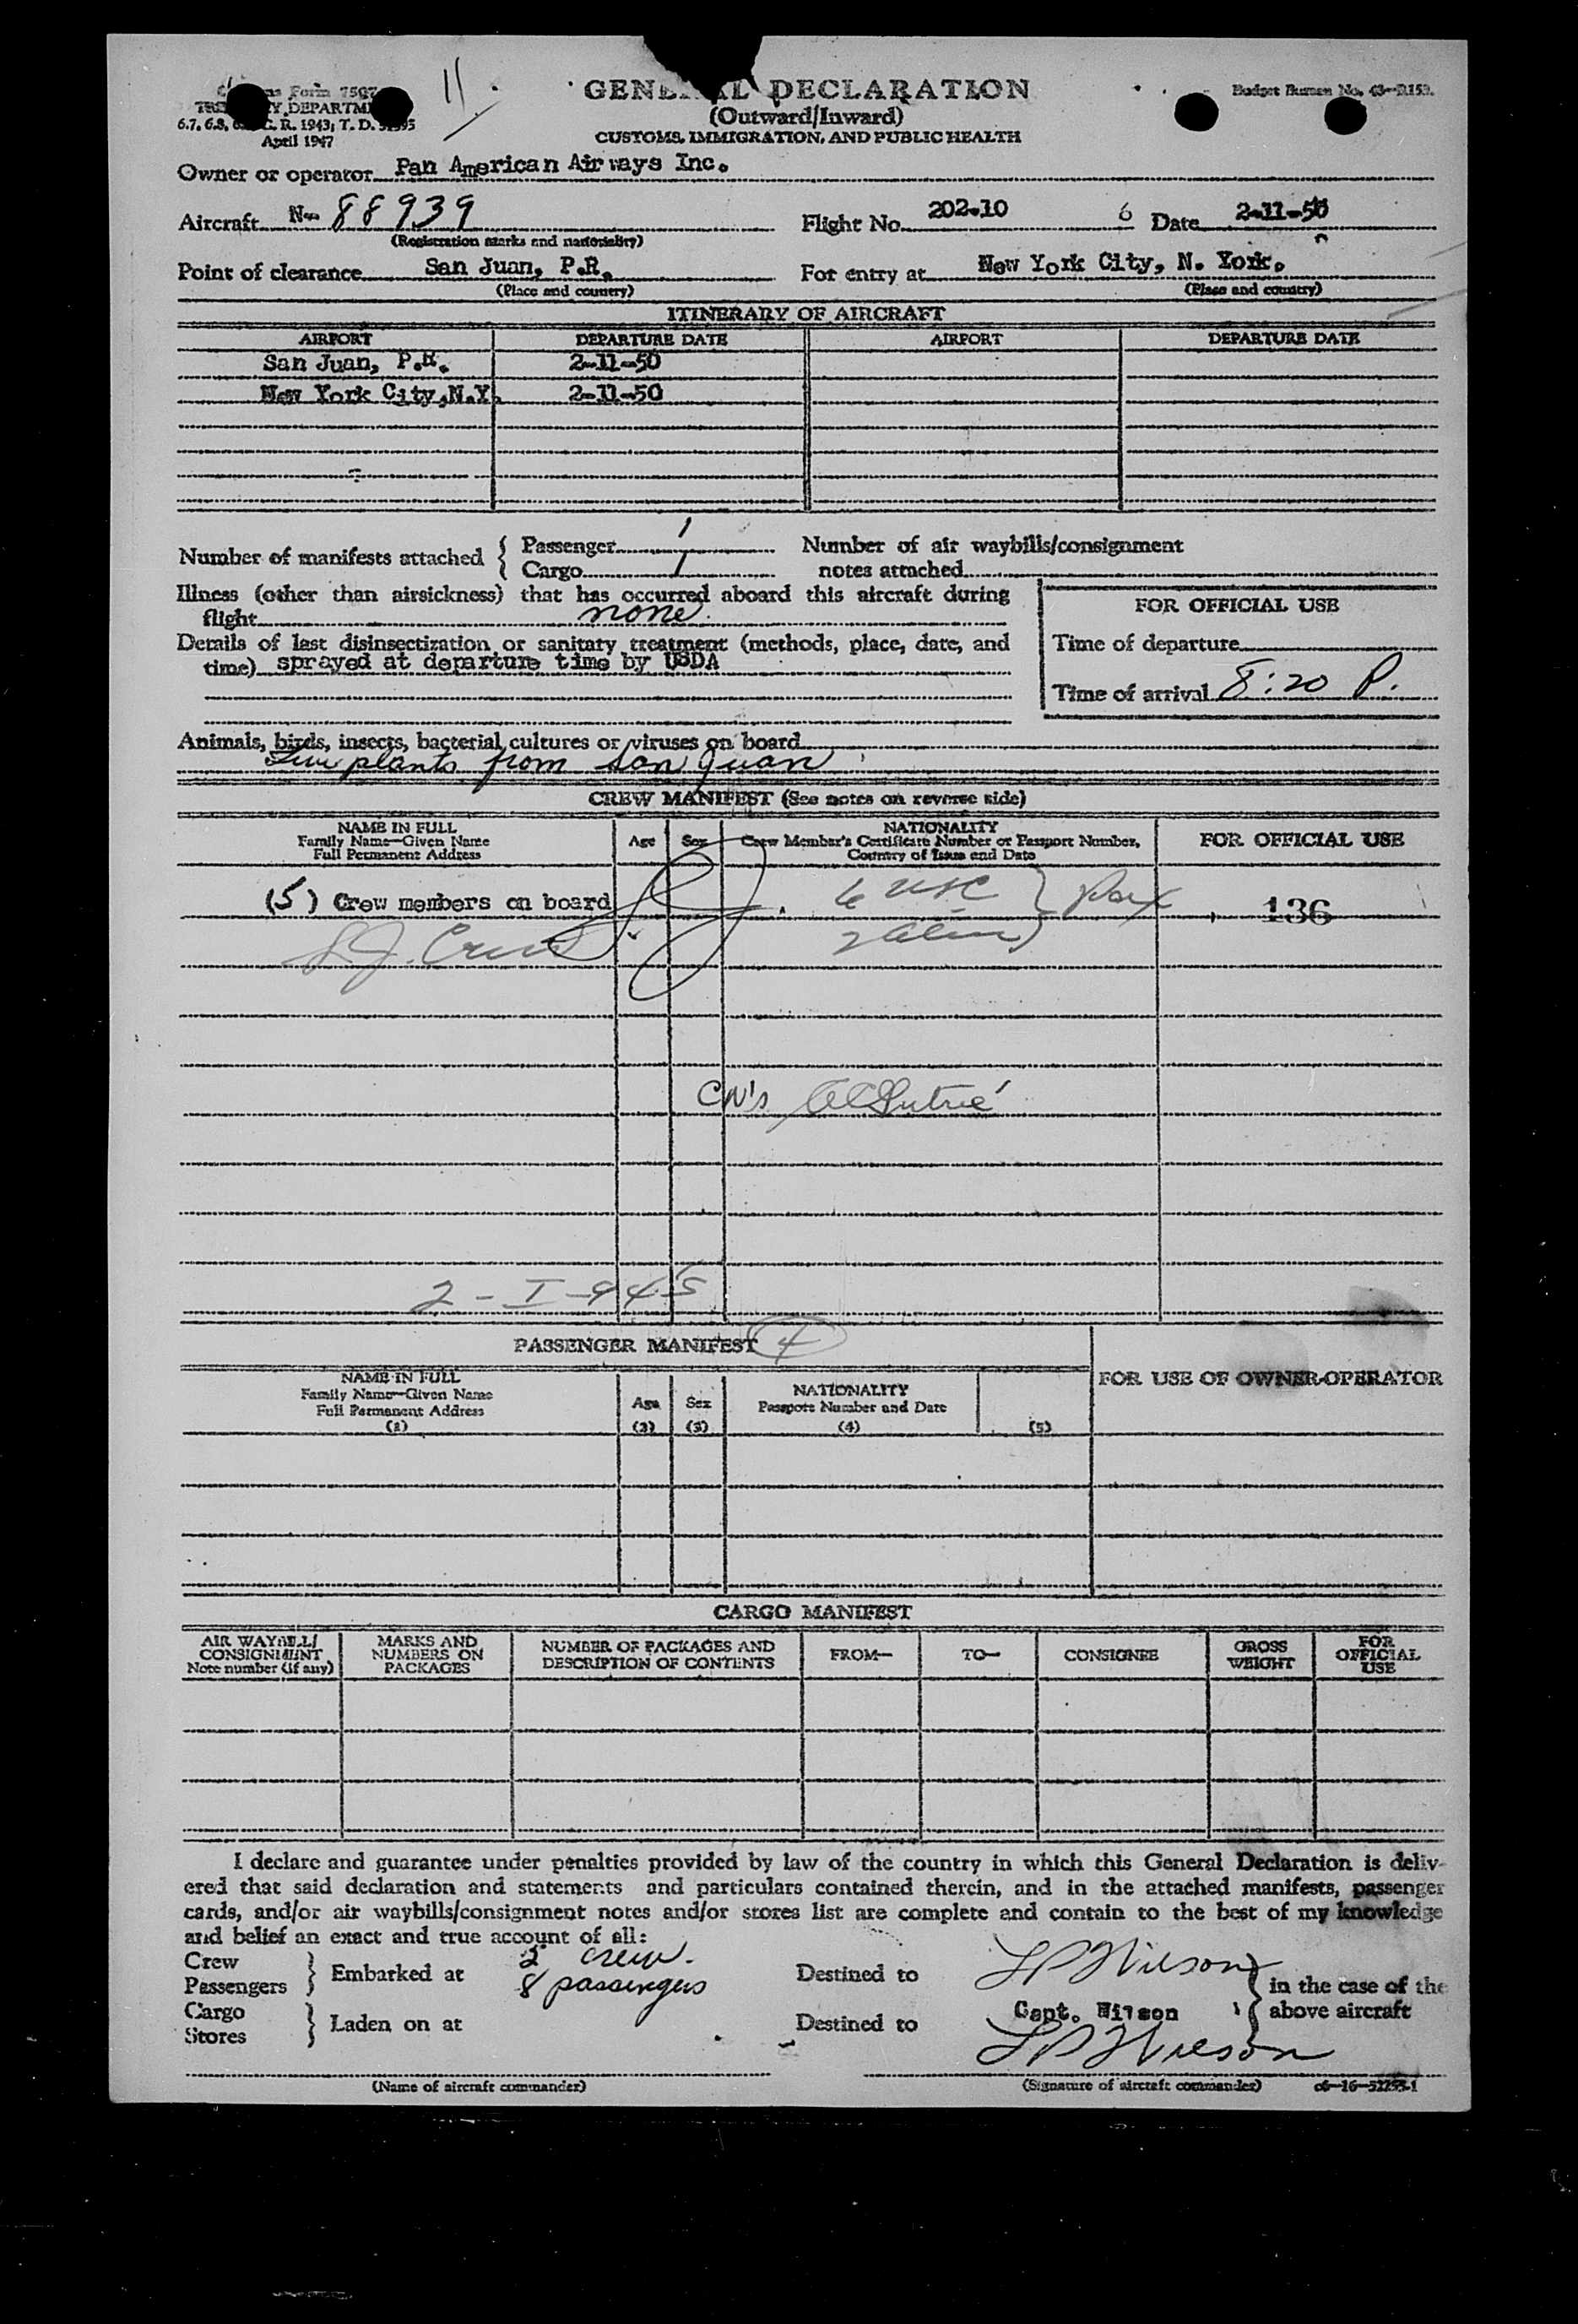 Customs Form 7507
TREASURY DEPARTMENT
6.7, 6.8, C. R. 1943; T. D.
April 1947
11
GENERAL DECLARATION
(Outward/Inward)
CUSTOMS, IMMIGRATION, AND PUBLIC HEALTH
Budget Bureau No. 43-R153.
Owner or operator Pan American Airways Inc.
Aircraft N- 88939 Flight No. 202-10 6 Date 2-11-50
(Registration marks and nationality)
Point of clearance San Juan, P.R. For entry at New York City, N. York.
(Place and country) (Place and country)
ITINERARY OF AIRCRAFT
AIRPORT DEPARTURE DATE AIRPORT DEPARTURE DATE
San Juan, P.R. 2-11-50
New York City, N.Y. 2-11-50
Number of manifests attached { Passenger 1 Number of air waybills/consignment
Cargo 1 notes attached
Illness (other than airsickness) that has occurred aboard this aircraft during
flight none.
FOR OFFICIAL USE
Details of last disinsectization or sanitary treatment (methods, place, date, and
time) sprayed at departure time by USDA
Time of departure
Time of arrival 8:20 P.
Animals, birds, insects, bacterial cultures or viruses on board
plants from San Juan
CREW MANIFEST (See notes on reverse side)
NAME IN FULL
Family Name—Given Name
Full Permanent Address
Age Sex
NATIONALITY
Crew Member's Certificate Number or Passport Number,
Country of Issue and Date
FOR OFFICIAL USE
(5) Crew members on board 6 USC } Pax 136
2 alien
CN's
2 - I - 945
PASSENGER MANIFEST 4
FOR USE OF OWNER-OPERATOR
NAME IN FULL
Family Name—Given Name
Full Permanent Address
(1)
Age
(2)
Sex
(3)
NATIONALITY
Passport Number and Date
(4)
(5)
CARGO MANIFEST
AIR WAYBILL/
CONSIGNMENT
Note number (if any)
MARKS AND
NUMBERS ON
PACKAGES
NUMBER OF PACKAGES AND
DESCRIPTION OF CONTENTS
FROM— TO— CONSIGNEE
GROSS
WEIGHT
FOR
OFFICIAL
USE
I declare and guarantee under penalties provided by law of the country in which this General Declaration is deliv-
ered that said declaration and statements and particulars contained therein, and in the attached manifests, passenger
cards, and/or air waybills/consignment notes and/or stores list are complete and contain to the best of my knowledge
and belief an exact and true account of all:
Crew
Passengers } Embarked at 5 crew. 8 passengers Destined to LP Wilson } in the case of the
Cargo
Stores } Laden on at Destined to Capt. Wilson above aircraft
LP Wilson
(Name of aircraft commander) (Signature of aircraft commander) c6—16—52253-1